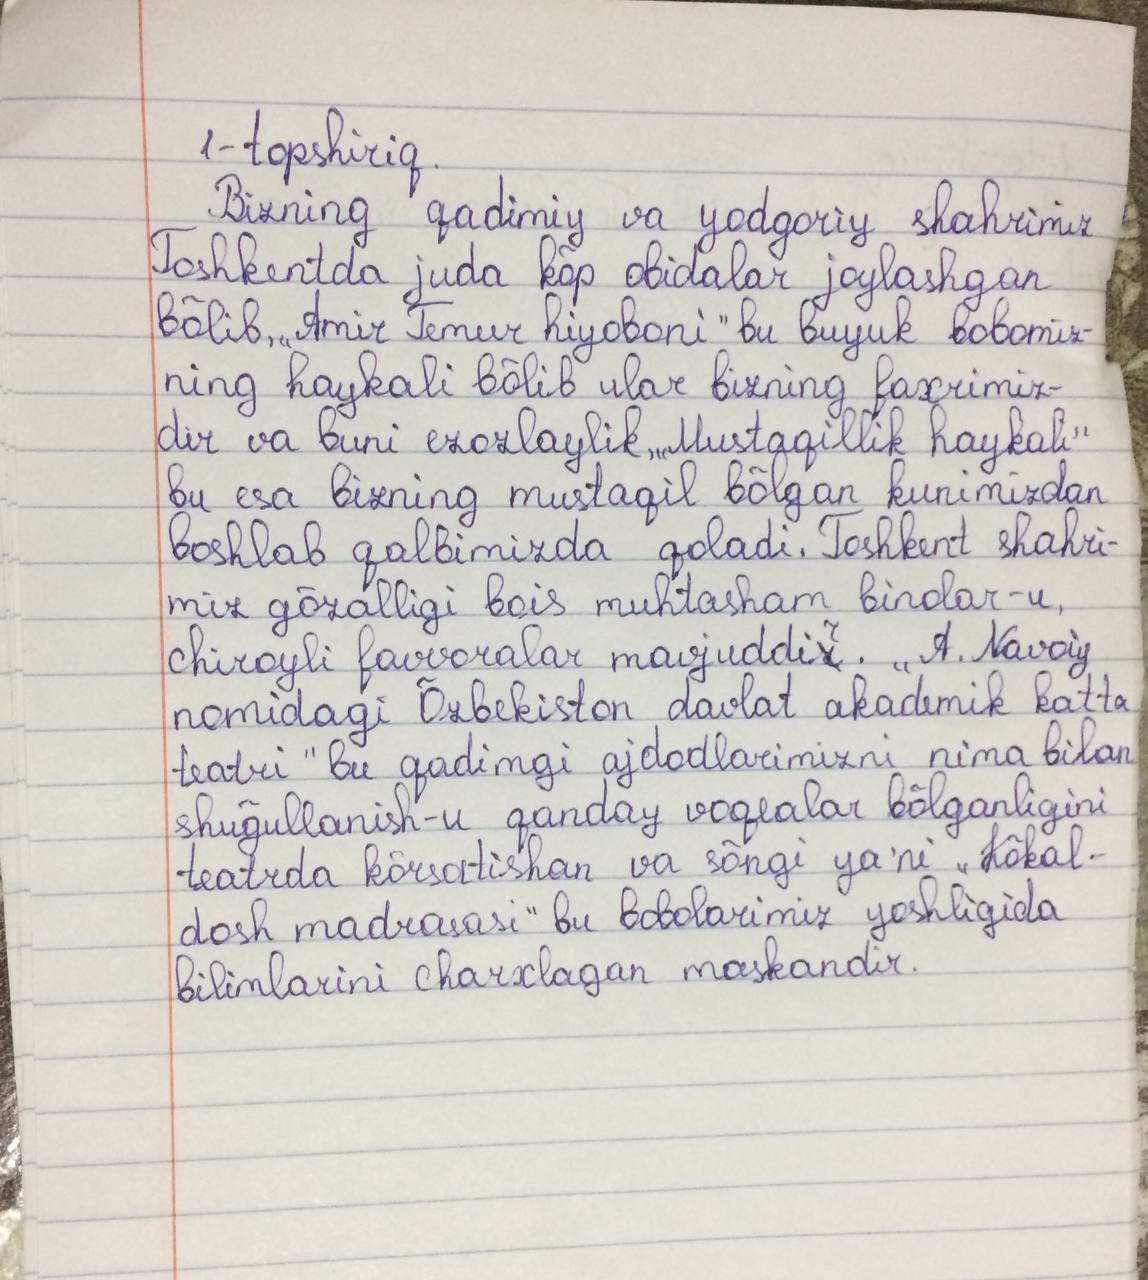 1-topshiriq.
Bizning qadimiy va yodgoriy shahrimiz
Toshkentda juda kõp obidalar joylashgan
bõlib, „Amir Temur hiyoboni" bu buyuk bobomiz-
ning haykali bõlib ular bizning faxrimiz-
dir va buni ezozlaylik, „Mustaqillik haykali"
bu esa bizning mustaqil bõlgan kunimizdan
boshlab qalbimizda qoladi. Toshkent shahri-
miz gõzalligi bois muhtasham binolar-u,
chiroyli favvoralar mavjuddir. „A. Navoiy
nomidagi Õzbekiston davlat akademik katta
teatri" bu qadimgi ajdodlarimizni nima bilan
shug̃ullanish-u qanday voqealar bõlganligini
teatrda kõrsatishan va sõngi ya'ni „Kõkal-
dosh madrasasi" bu bobolarimiz yoshligida
bilimlarini charxlagan maskandir.